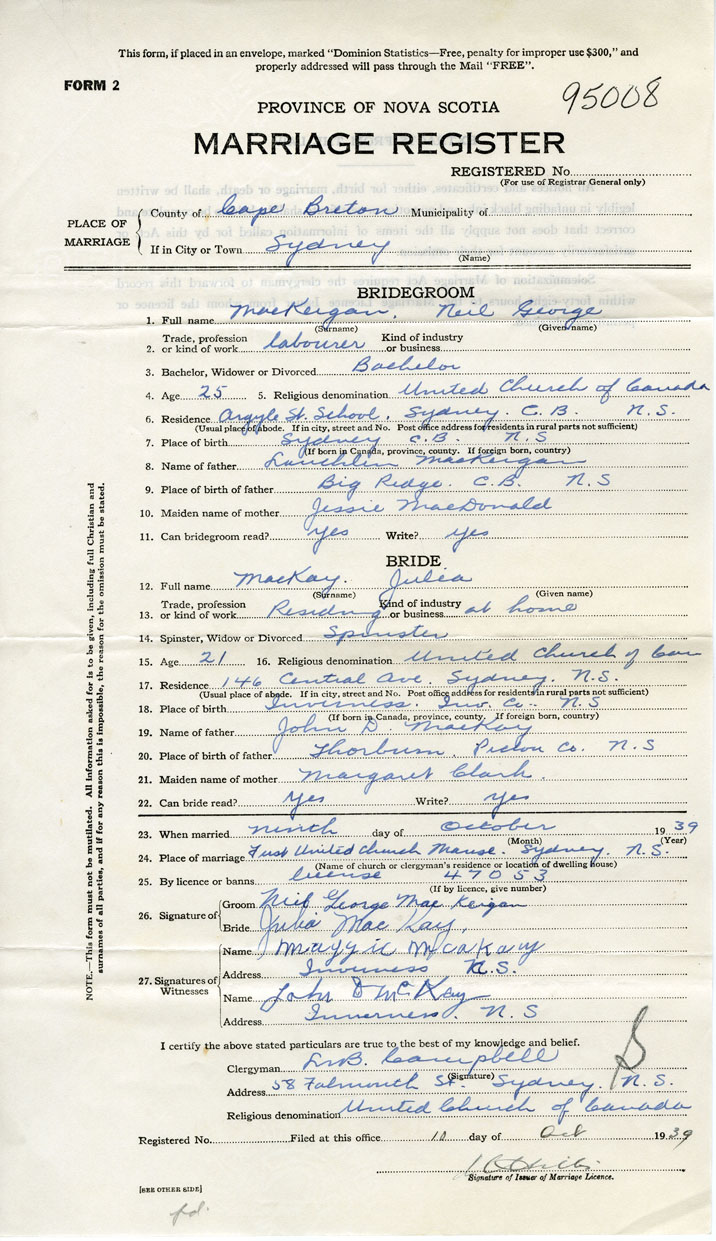 This form, if placed in an envelope, marked "Dominion Statistics—Free, penalty for improper use $300," and
properly addressed will pass through the Mail "FREE".
FORM 2
95008
PROVINCE OF NOVA SCOTIA
MARRIAGE REGISTER
REGISTERED No.
(For use of Registrar General only)
PLACE OF MARRIAGE
County of Cape Breton Municipality of
If in City or Town Sydney
(Name)
BRIDEGROOM
1. Full name MacKeigan, Neil George
(Surname) (Given name)
2. Trade, profession or kind of work labourer Kind of industry or business
3. Bachelor, Widower or Divorced Bachelor
4. Age 25 5. Religious denomination United Church of Canada
6. Residence Argyle St. School, Sydney. C.B. N.S.
(Usual place of abode. If in city, street and No. Post office address for residents in rural parts not sufficient)
7. Place of birth Sydney C.B. N.S
(If born in Canada, province, county. If foreign born, country)
8. Name of father Lauchlin MacKeigan
9. Place of birth of father Big Ridge. C.B. N.S
10. Maiden name of mother Jessie MacDonald
11. Can bridegroom read? yes Write? yes
BRIDE
12. Full name MacKay. Julia
(Surname) (Given name)
13. Trade, profession or kind of work Residing Kind of industry or business at home
14. Spinster, Widow or Divorced Spinster
15. Age 21 16. Religious denomination United Church of Can
17. Residence 146 Central Ave. Sydney. N.S.
(Usual place of abode. If in city, street and No. Post office address for residents in rural parts not sufficient)
18. Place of birth Inverness. Inv. Co. N.S
(If born in Canada, province, county. If foreign born, country)
19. Name of father John D MacKay
20. Place of birth of father Thorburn, Pictou Co. N.S
21. Maiden name of mother Margaret Clark.
22. Can bride read? Yes Write? yes
23. When married ninth day of October 1939
(Month) (Year)
24. Place of marriage First United Church Manse. Sydney. N.S.
(Name of church or clergyman's residence or location of dwelling house)
25. By licence or banns license 47053
(If by licence, give number)
26. Signature of
Groom Neil George Mac Keigan
Bride Julia Mac Kay,
27. Signatures of Witnesses
Name Maggie McaKay
Address Inverness N.S.
Name John D McKay
Address Inverness. N.S
I certify the above stated particulars are true to the best of my knowledge and belief.
Clergyman Campbell
(Signature)
Address 58 Falmouth St. Sydney. N.S.
Religious denomination United Church of Canada
Registered No. Filed at this office 10 day of Oct 1939
Signature of Issuer of Marriage Licence.
[SEE OTHER SIDE]
NOTE.—This form must not be mutilated. All information asked for is to be given, including full Christian and
surnames of all parties, and if for any reason this is impossible, the reason for the omission must be stated.